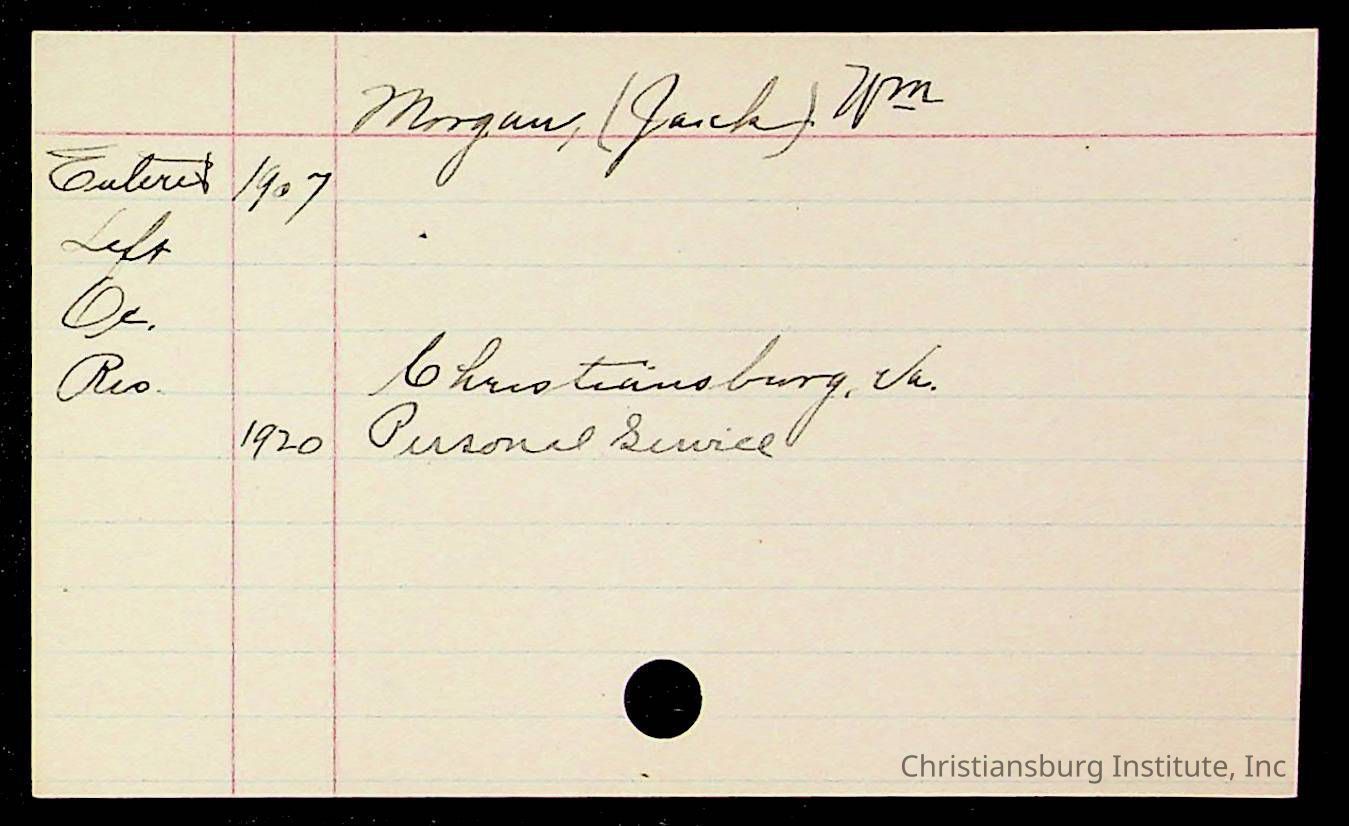 Morgan, (Jack) Wm
Entered 1907
Left
Oc.
Res. Christiansburg, Va.
1920 Personal Service
Christiansburg Institute, Inc